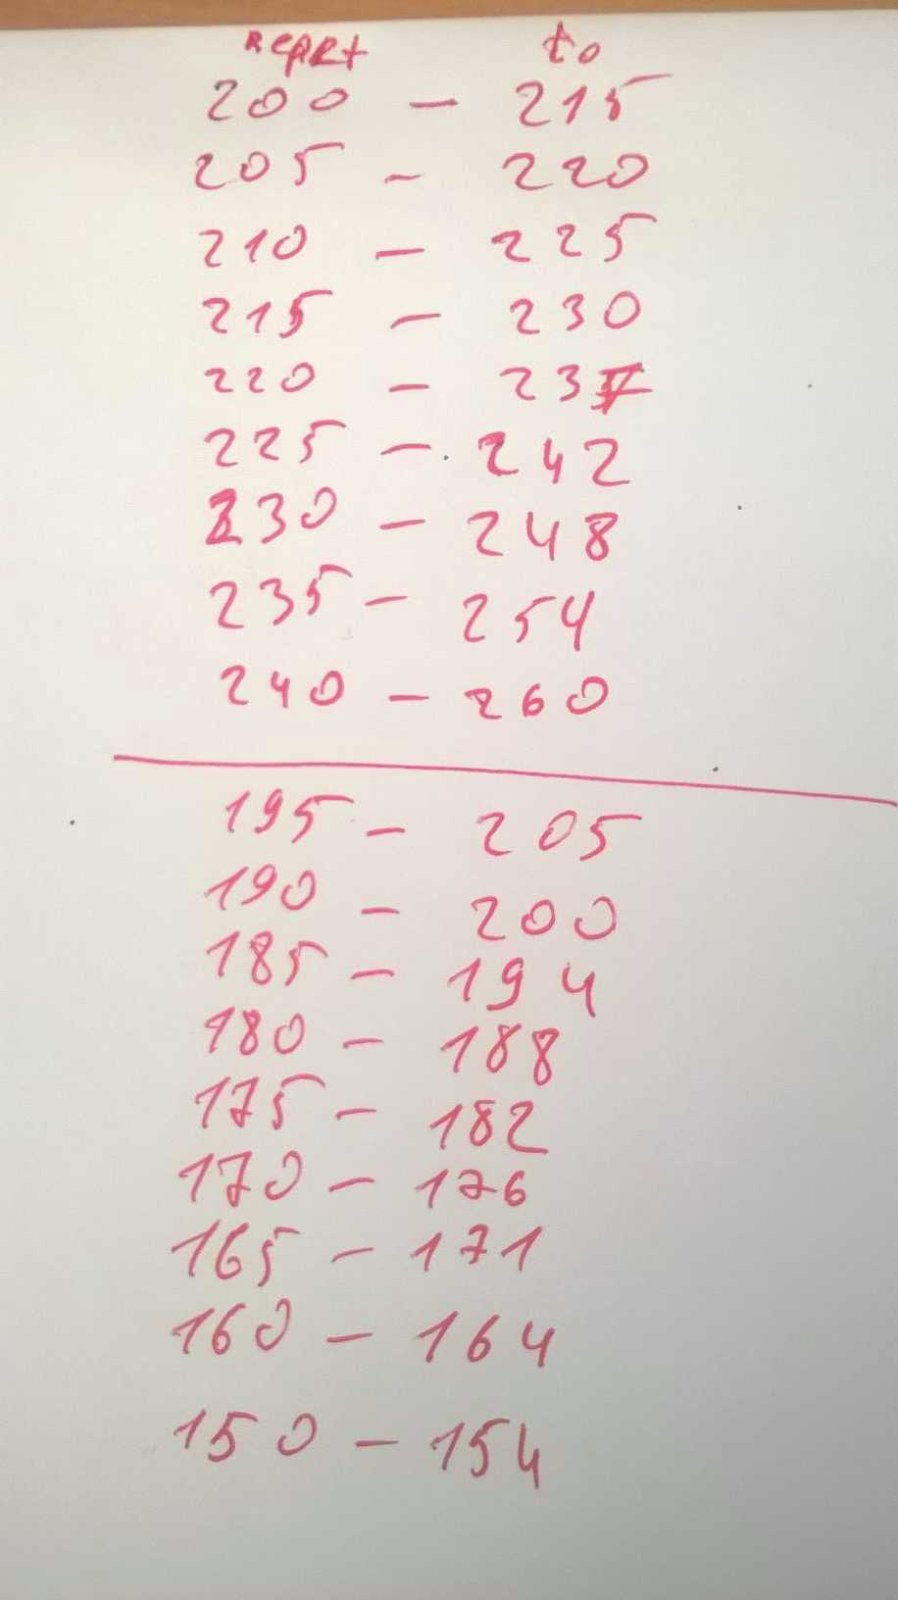 to
200 - 215
205 - 220
210 - 225
215 - 230
220 - 237
225 - 242
230 - 248
235 - 254
240 - 260
195 - 205
190 - 200
185 - 194
180 - 188
175 - 182
170 - 176
165 - 171
160 - 164
150 - 154